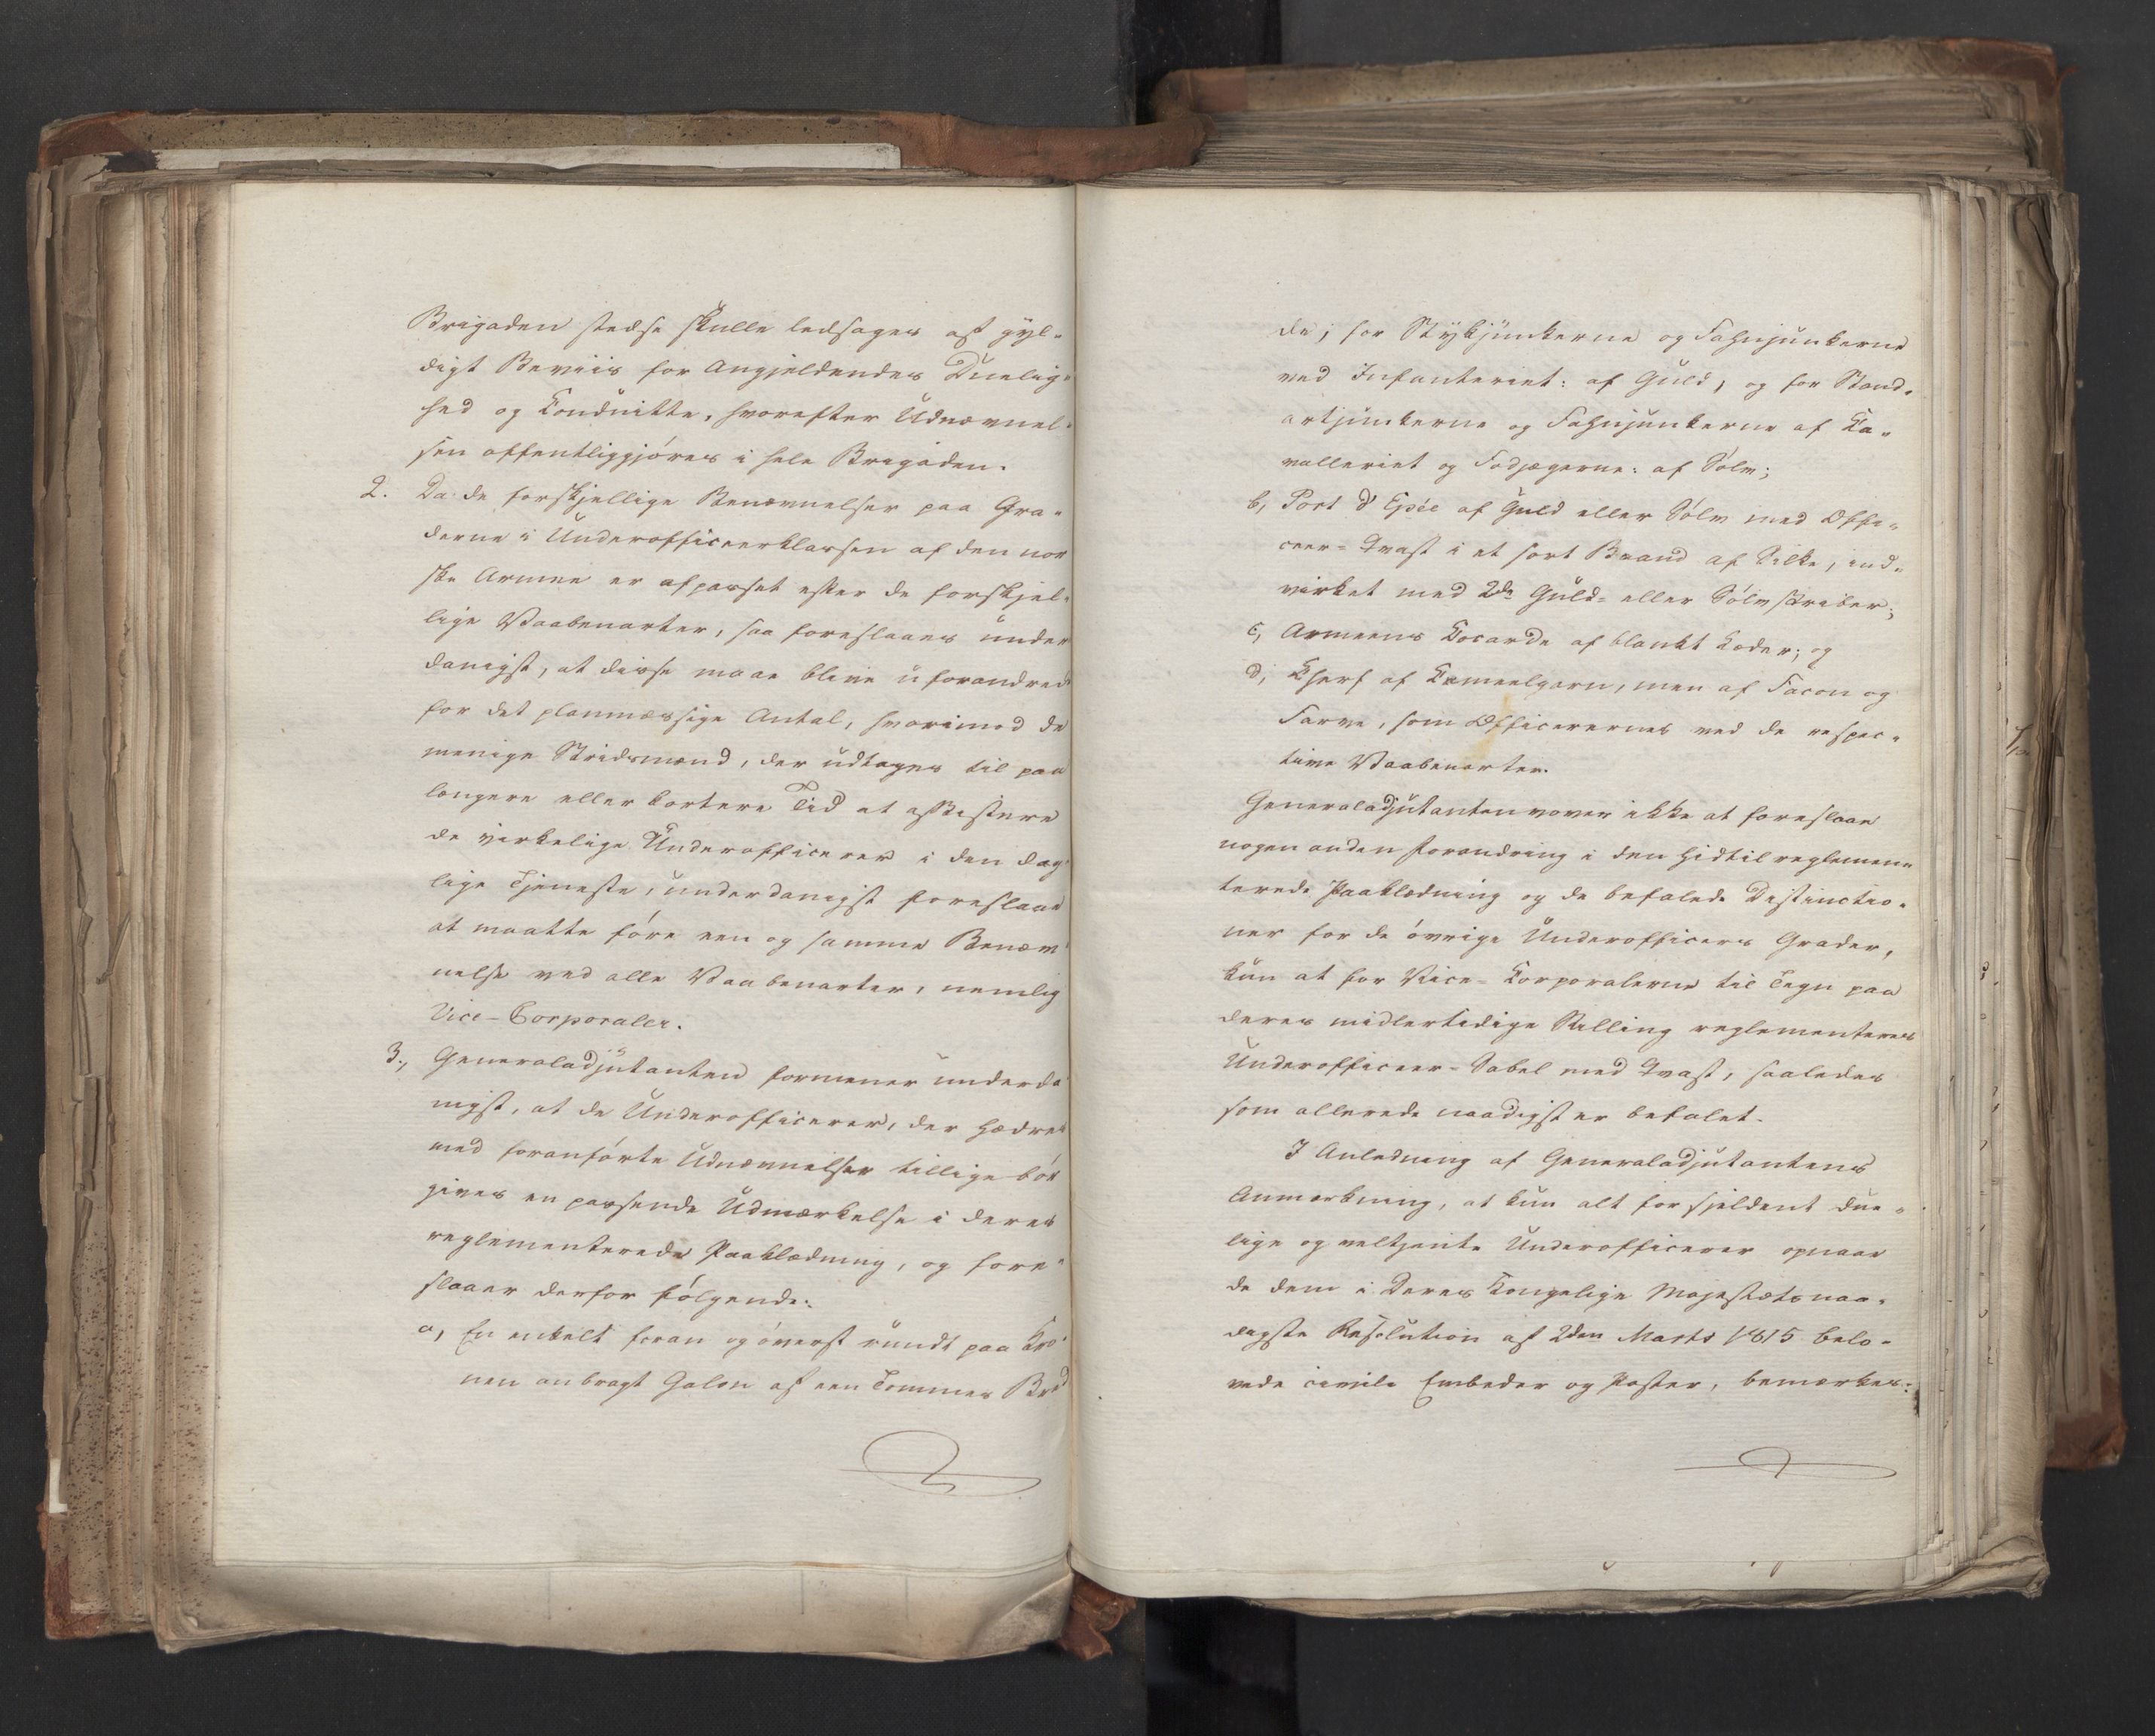 Brigaden stedse skulle ledsages af gyl-
digt Beviis for Angjeldendes Duelig-
hed og Conduitte, hvorefter Udnævnel-
sen offentliggjøres i hele Brigaden.
2. Da de forskjellige Benævnelser paa Gra-
derne i Underofficeerklassen af den nor
ske Armee er afpasset efter de forskjel-
lige Vaabenarter, saa foreslaaes under
danigst, at disse maae blive uforandrede
for det planmæssige Antal, hvorimod de
menige Stridsmænd, der udtages til paa
længere eller kortere Tid at assistere
de virkelige Underofficerer i den dag-
lige Tjeneste, underdanigst foreslaaes
at maatte føre een og samme Benæv-
nelse ved alle Vaabenarter, nemlig
Vice-Corporaler.
3., Generaladjutanten formener underda
nigst, at de Underofficerer, der hædres
med foranførte Udnævnelser tillige bør
gives en passende Udmærkelse i deres
reglementerede Paaklædning, og fore-
slaaer derfor følgende:
a, En enkelt foran og øverst rundt paa Kra-
nen anbragt Galon af een Tommes Bred
de; for Stykjunkerne og Fahnjunkerne
ved Infanteriet: af Guld, og for Stand-
artjunkerne og Fahnjunkerne af Ca-
valleriet og Fodjægerne: af Sølv;
b, Port d'Epée af Guld eller Sølv med Offi-
ceer-Qvast i et sort Baand af Silke, ind-
virket med 2de Guld- eller Sølvstriber;
c, Armeens Cocarde af blankt Læder; og
d, Skjerf af Kameelgarn, men af Facon og
Farve, som Officerernes ved de respec-
tive Vaabenarter.
Generaladjutanten vover ikke at foreslaae
nogen anden Forandring i den hidtil reglemen-
terede Paaklædning og de befalede Distinctio-
ner for de øvrige Underofficers Grader,
kun at for Vice-Corporalerne til Tegn paa
deres midlertidige Stilling reglementeres
Underofficeer-Sabel med Qvast, saaledes
som allerede naadigst er befalet.
I Anledning af Generaladjutantens
Anmærkning, at kun alt for sjeldent due-
lige og veltjente Underofficerer opnaae
de dem i Deres Kongelige Majestæts naa-
digste Resolution af 2den Marts 1815 belo-
vede civile Embeder og Poster, bemærkes: